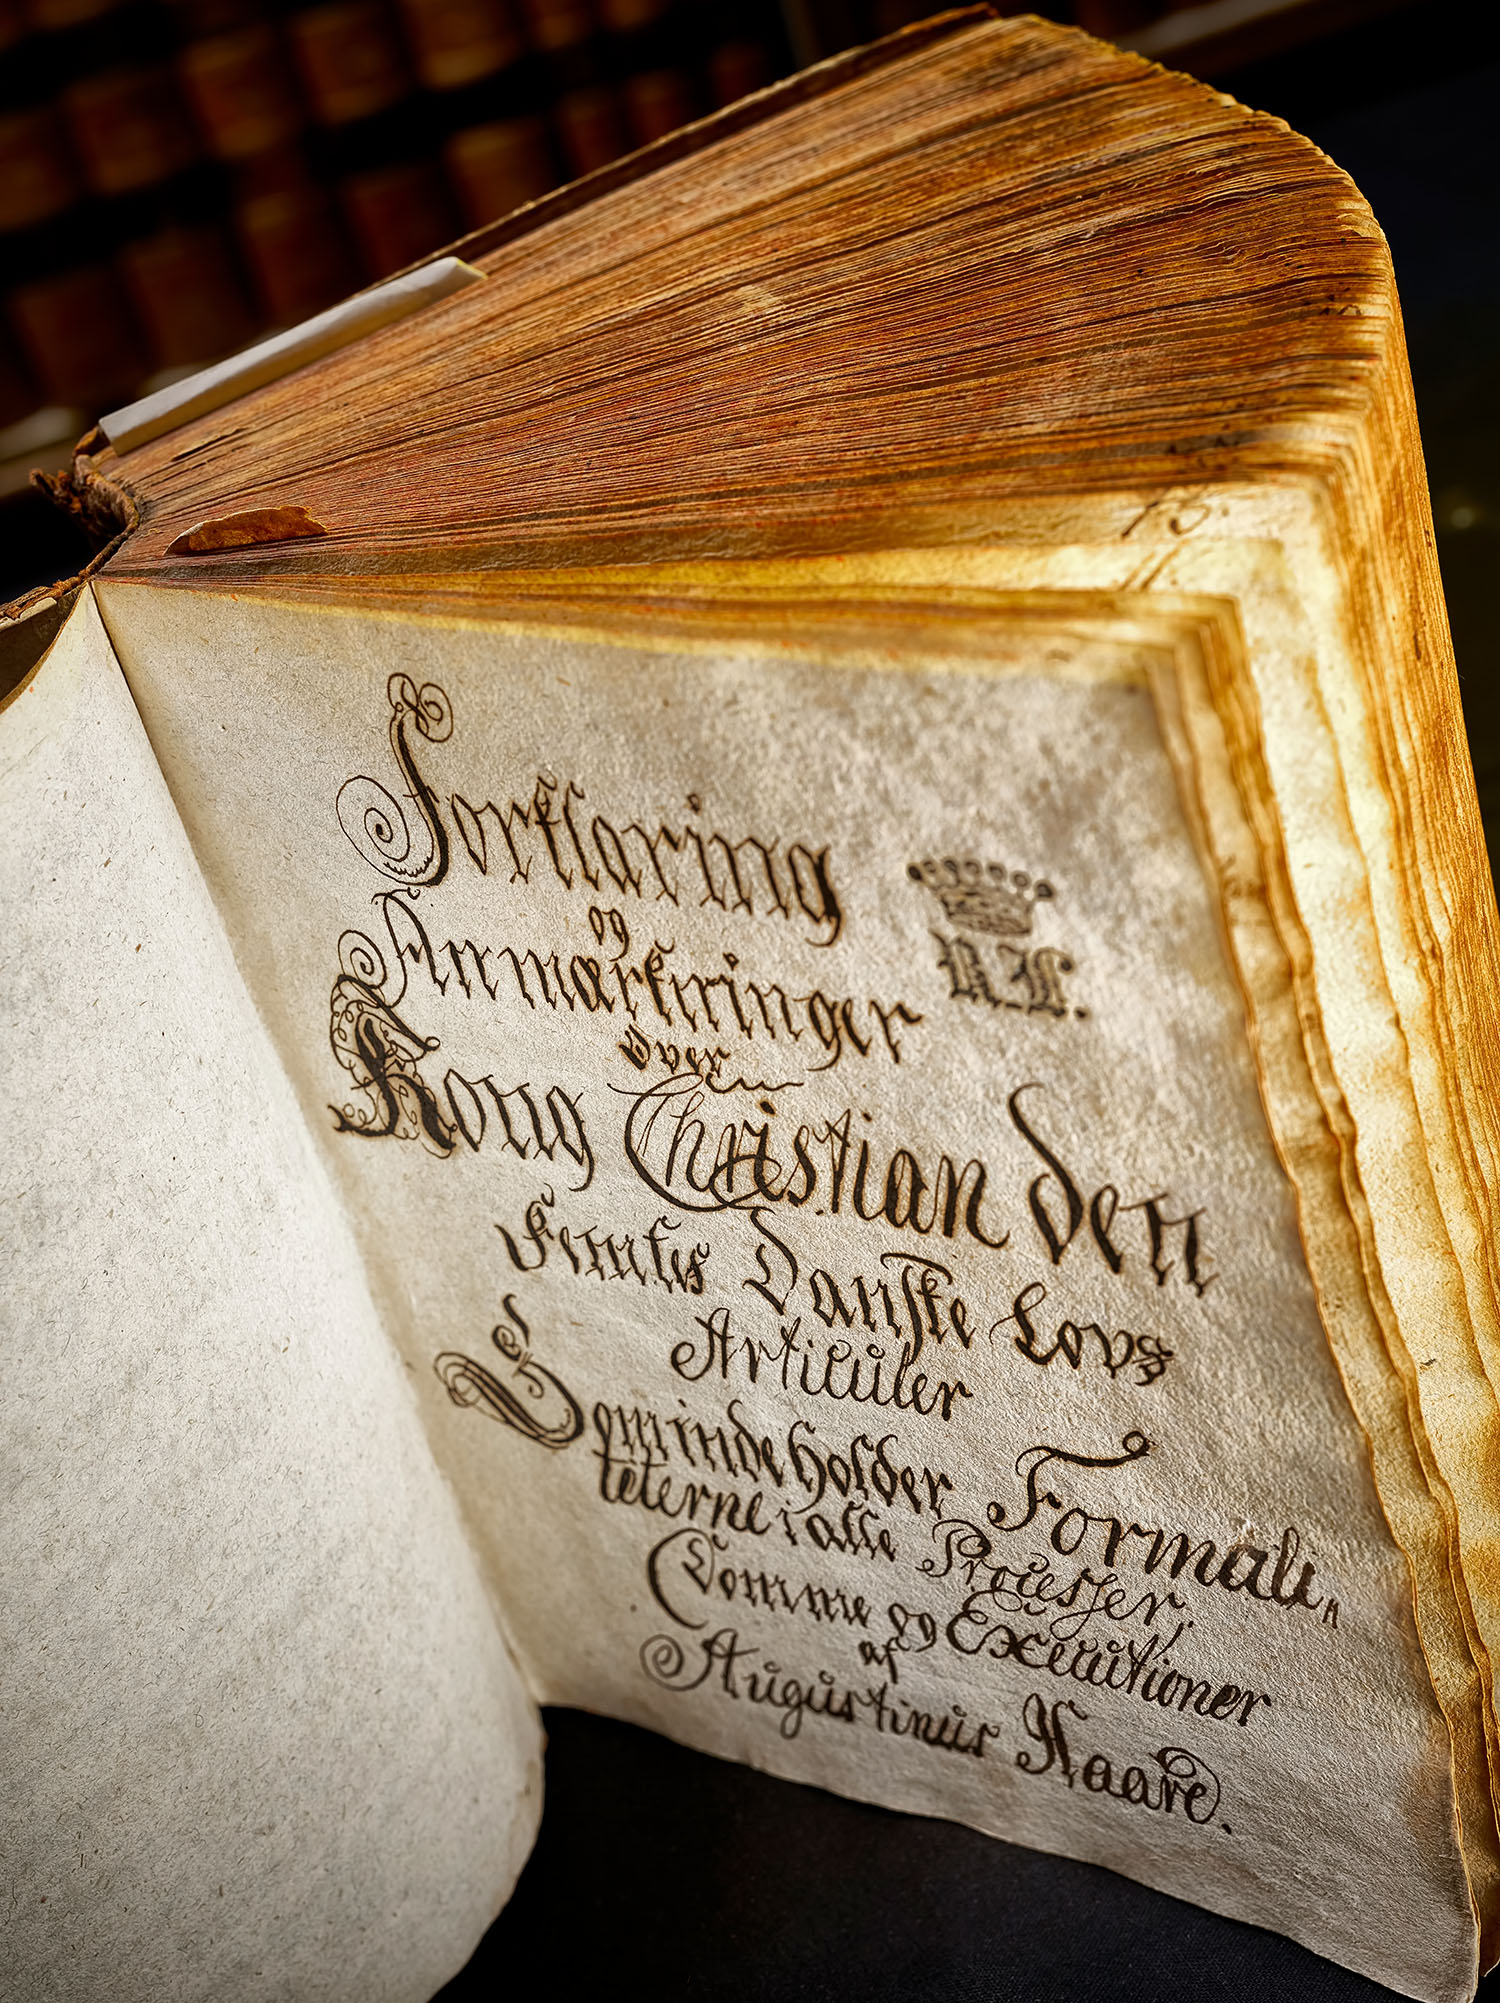 Forklaring
og
Anmærkninger
Over
Kong Christian den
Femtes Danske Lovs
Articuler
Som indeholder Formali„
teterne i alle Processer,
Domme og Executioner
af
Augustinus Haare.
13.